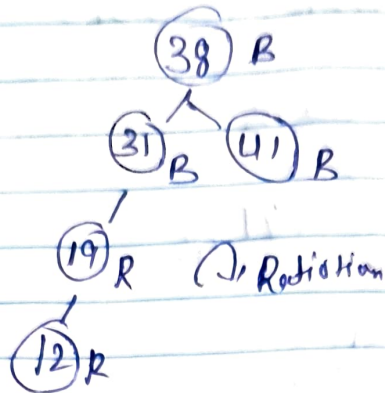 38 B
31 B 41 B
19 R Rotiotion
12 R